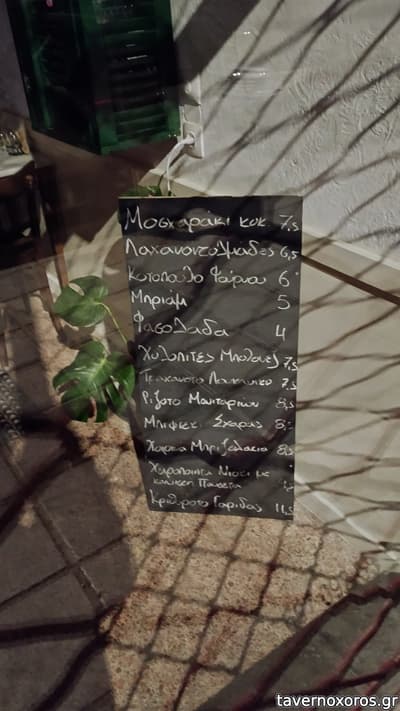 Μοσχαράκι κοκ. 7,5
Λαχανοντολμάδες 6,5
Κοτόπουλο Φούρνου 6
Μπριάμ 5
Φασολάδα 4
Χυλοπίτες Μπολονέζ 7,5
Τσιγαριστό Λουκάνικο 7,5
Ριζότο Μανιταριών 8,5
Μπιφτέκι Σχάρας 8,-
Χοιρινά Μπριζολάκια 8,5
Χειροποίητα Νιόκι με
Πανσέτα
Κριθαρότο Γαρίδας 11,5
tavernoxoros.gr